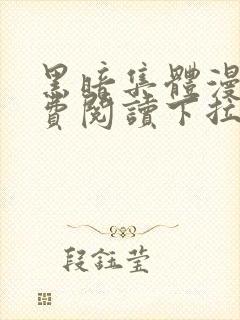 黑暗集體漫
費閱讀下拉
段鈺瑩